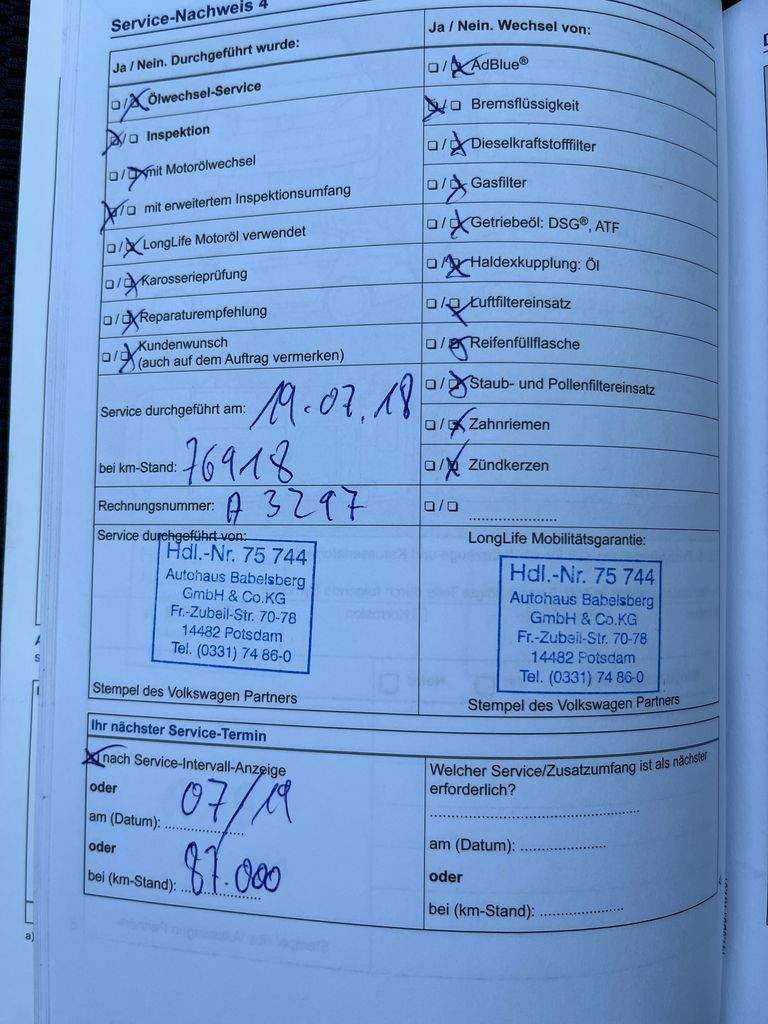 Service-Nachweis 4
Ja / Nein. Durchgeführt wurde:
Ölwechsel-Service
Inspektion
mit Motorölwechsel
mit erweitertem Inspektionsumfang
LongLife Motoröl verwendet
Karosserieprüfung
Reparaturempfehlung
Kundenwunsch
(auch auf dem Auftrag vermerken)
Service durchgeführt am: 19.07.18
bei km-Stand: 76918
Rechnungsnummer: A 3297
Ja / Nein. Wechsel von:
AdBlue®
Bremsflüssigkeit
Dieselkraftstofffilter
Gasfilter
Getriebeöl: DSG®, ATF
Haldexkupplung: Öl
Luftfiltereinsatz
Reifenfüllflasche
Staub- und Pollenfiltereinsatz
Zahnriemen
Zündkerzen
Service durchgeführt von:
Hdl.-Nr. 75 744
Autohaus Babelsberg
GmbH & Co.KG
Fr.-Zubeil-Str. 70-78
14482 Potsdam
Tel. (0331) 74 86-0
Stempel des Volkswagen Partners
LongLife Mobilitätsgarantie:
Hdl.-Nr. 75 744
Autohaus Babelsberg
GmbH & Co.KG
Fr.-Zubeil-Str. 70-78
14482 Potsdam
Tel. (0331) 74 86-0
Stempel des Volkswagen Partners
Ihr nächster Service-Termin
nach Service-Intervall-Anzeige
oder
am (Datum): 07/19
oder
bei (km-Stand): 87.000
Welcher Service/Zusatzumfang ist als nächster
erforderlich?
am (Datum):
oder
bei (km-Stand):
a)